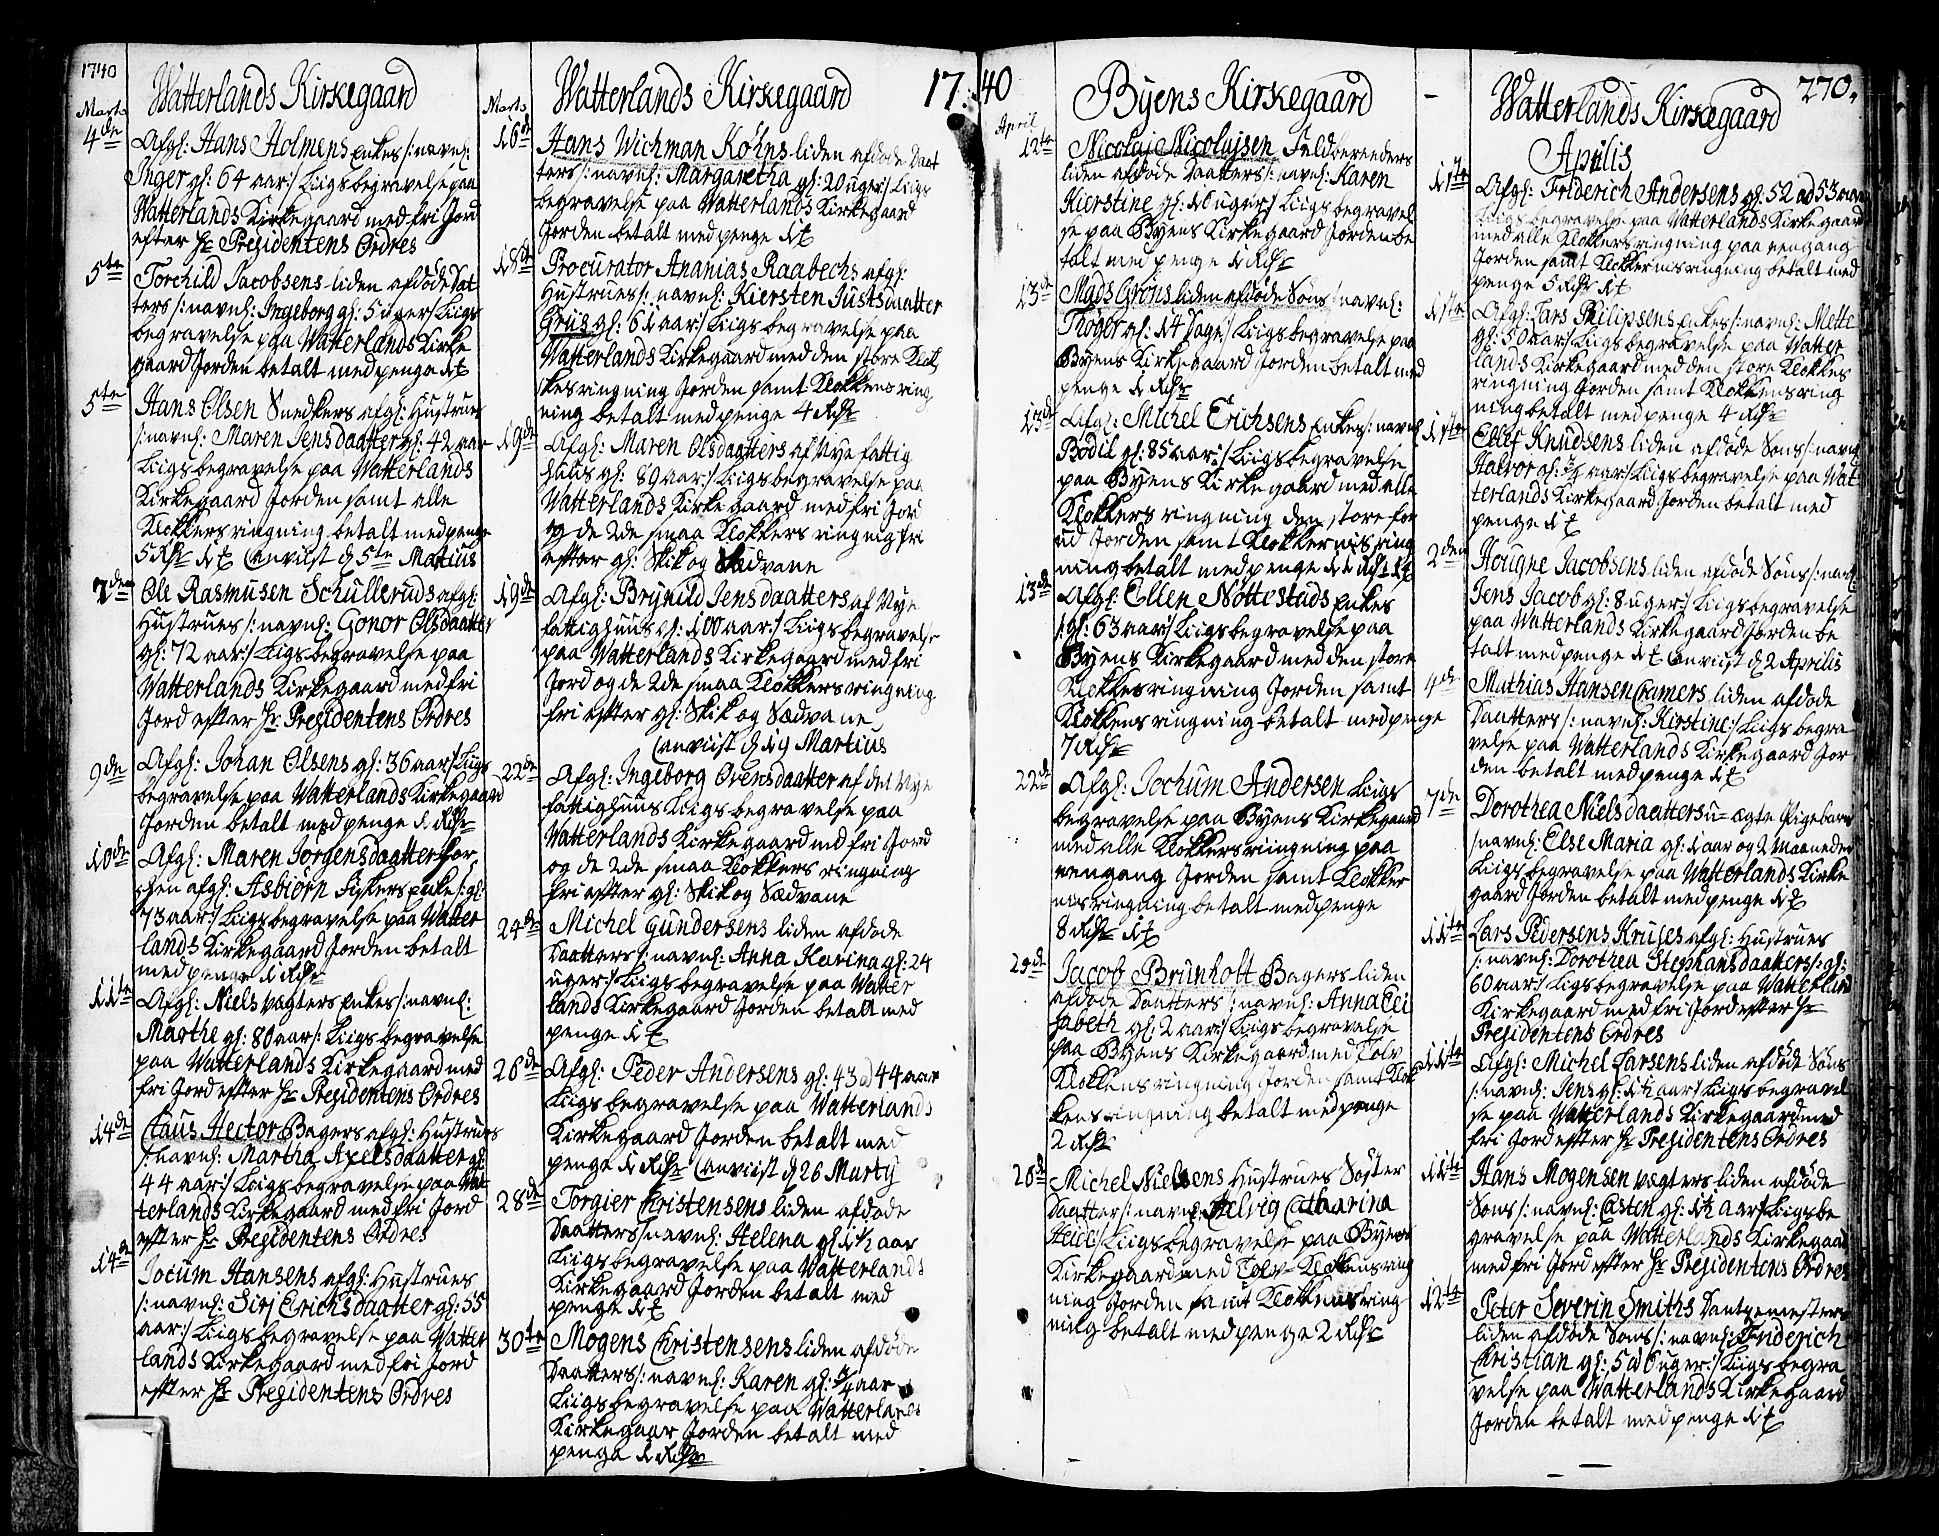 1740
Watterlands Kirkegaard
Marts
4de
Afgl: Hans Holmens Enkes /: navnl:
Inger gl: 64 aar:/ Liigsbegravelse paa
Watterlands Kirkegaard med fri Jord
efter Hr Presidentens Ordres
5te
Torchild Jacobsens liden afdöde Dat
ters /: navnl: Ingeborg gl: 5 uger:/ Liigs
begravelse paa Watterlands Kirke
gaard Jorden betalt med penge
5te
Hans Olsen Snedkers afgl: Hustrues
/: navnl: Maren Jensdaatter gl: 42 aar
Liigsbegravelse paa Watterlands
Kirkegaard Jorden samt alle
Klokkers ringning betalt med penge
5 Rdr Anviist d 5te Martius
7den
Ole Rasmusen Schulleruds afgl:
Hustrues /: navnl: Gonor Olsdaatter
gl: 72 aar:/ Liigsbegravelse paa
Watterlands Kirkegaard med fri
Jord efter Hr Presidentens Ordres
9de
Afgl: Johan Olsens gl: 36 aar:/ Liigs
begravelse paa Watterlands Kirkegaard
Jorden betalt med penge 1 Rdr
10de
Afgl: Maren Jörgensdaatter for
gen afgl: Asbiörn Fiskers Enke /: gl:
73 aar:/ Liigsbegravelse paa Watter
lands Kirkegaard Jorden betalt
med penge 1 Rdr
11te
Afgl: Niels Vægters Enkes /: navnl:
Marthe gl: 80 aar /: Liigsbegravelse
paa Watterlands Kirkegaard med
fri Jord efter Hr Presidentens Ordres
14de
Claus Hector Bagers afgl: Hustrues
/: navnl: Martha Axelsdaatter gl:
44 aar:/ Liigsbegravelse paa Wat
terlands Kirkegaard med fri Jord
efter Hr Presidentens Ordres
14de
Jocum Hansens afgl: Hustrues
/: navnl: Sirj Erichsdaatter gl: 55
aar:/ Liigsbegravelse paa Watter
lands Kirkegaard med fri Jord
efter Hr Presidentens Ordres
Watterlands Kirkegaard 17
Marts
16de
Hans Wichman Kohns liden afdöde Daat
ters /: navnl: Margaretha gl: 20 uger:/ Liigs
begravelse paa Watterlands Kirkegaard
Jorden betalt med penge
18de
Procurator Ananias Raabechs afgl:
Hustrues /: navnl: Kiersten Justsdaatter
Grüs gl: 61 aar:/ Liigsbegravelse paa
Watterlands Kirkegaard med den store Klok
kes ringning Jorden samt Klokkens ring
ning betalt med penge 4 Rdr
19de
Afgl: Maren Olsdaatters af Nye fattig
huus gl: 89 aar:/ Liigsbegravelse paa
Watterlands Kirkegaard med fri Jord
og de 2de smaa Klokkers ringnig fri
efter gl: Skik og Sædvane
19de
Afgl: Brynild Jensdaatters af Nye
fattighuus gl: 100 aar:/ Liigsbegravelse
paa Watterlands Kirkegaard med fri
Jord og de 2de smaa Klokkers ringning
fri efter gl: Skik og Sædvane
Anviist d 19 Martius
22de
Afgl: Ingeborg Ovensdaatter af det Nye
fattighuus Liigsbegravelse paa
Watterlands Kirkegaard med fri Jord
og de 2de smaa Klokkers ringning
fri efter gl: Skik og Sædvane
24de
Michel Gundersens liden afdöde
Daatters /: navnl: Anna Karina gl: 24
uger:/ Liigsbegravelse paa Watter
lands Kirkegaard Jorden betalt med
penge
26de
Afgl: Peder Andersens gl: 43 a 44 aar
Liigsbegravelse paa Watterlands
Kirkegaard Jorden betalt med
penge 1 Rdr Anviist d 26 Martij
28de
Torgier Christensens liden afdöde
Daatters /: navnl: Helena gl: 1 1/2 aar
Liigsbegravelse paa Watterlands
Kirkegaard Jorden betalt med
penge
30te
Mogens Christensens liden afdöde
Daatters /: navnl: Karen gl: aar
Liigsbegravelse paa Watterlands
Kirkegaar Jorden betalt med
penge 1 Rdr
40 Byens Kirkegaard
April
12te
Nicolaj Nicolajsen Feldberenders
liden afdöde Daatters /: navnl: Karen
Kierstine gl: 16 uger:/ Liigsbegravel
se paa Byens Kirkegaard Jorden be
talt med penge 1 Rdr
13de
Mads Gröns liden afdöde Söns /: navnl:
Tröger gl: 14 Dage:/ Liigsbegravelse paa
Byens Kirkegaard Jorden betalt med
penge 1 Rdr
13de
Afgl: Michel Erichsens Enkes /: navnl
Bodil gl: 85 aar:/ Liigsbegravelse
paa Byens Kirkegaard med alle
Klokkers ringning den store for
ud Jorden samt Klokkernis ring
ning betalt med penge 11 Rdr
13de
Afgl: Ellen Nöttestads Enkes
/: gl: 63 aar:/ Liigsbegravelse paa
Byens Kirkegaard med den store
Klokkes ringning Jorden samt
Klokkens ringning betalt med penge
7 Rdr
22de
Afgl: Jochum Andersen Liigs
begravelse paa Byens Kirkegaard
med alle Klokkers riingning paa
eengang Jorden samt Klokker
nis ringning betalt med penge
8 Rdr
Jacob Brunholt Bagers liden
afdöde Daatters /: navnl: Anna Eli
sabeth gl: 2 aar:/ Liigsbegravelse
paa Byens Kirkegaard med Tolv
Klokkens ringning Jorden samt Klok
kens ringning betalt med penge
2 Rdr
Michel Nielsens Hustrues Söster
Daatter /: navnl: Helvig Catharina
Heidi:/ Liigsbegravelse paa Byens
Kirkegaard med Tolv Klokkens ring
ning Jorden samt Klokkens ring
ning betalt med penge 2 Rdr
270.
Watterlands Kirkegaard
Aprilis
1te
Afgl: Friderich Andersens gl: 52 ad 53 aar
Liigsbegravelse paa Watterlands Kirkegaard
med alle Klokkers ringning paa eengang
Jorden samt Klokkernis ringning betalt med
penge 5 Rdr
1te
Afgl: Lars Philipsens Enkes /: navnl: Mette
gl: 50 aar:/ Liigsbegravelse paa Watter
lands Kirkegaard med den store Klokkes
ringning Jorden samt Klokkens ring
ning betalt med penge 4 Rdr
1te
Ellef Knudsens liden afdöde Söns /: navnl
Halvor gl: aar:/ Liigsbegravelse paa Wat
terlands Kirkegaard Jorden betalt med
penge
2den
Hougne Jacobsens liden afdöde Söns /: navnl
Jens Jacob gl: 8 uger:/ Liigsbegravelse
paa Watterlands Kirkegaard Jorden be
talt med penge Anviist d 2 Aprilis
4de
Mathias Hansen Cramers liden afdöde
Daatters /: navnl: Kirstine:/ Liigsbegra
velse paa Watterlands Kirkegaard Jor
den betalt med penge
7de
Dorothea Nielsdaatters u=ægte Pigebarn
/: navnl: Else Maria gl: 1 aar og 2 Maaneder
Liigsbegravelse paa Watterlands Kirke
gaard Jorden betalt med penge
11te
Lars Pedersens Kruses afgl: Hustrues
/: navnl: Dorothea Stephansdaatters /: gl:
60 aar:/ Ligsbegravelse paa Watterland
Kirkegaard med fri Jord efter Hr
Presidentens Ordres
11te
Afgl: Michel Larsens liden afdöde Söns
/: navnl: Jens gl: 1 1/2 aar:/ Liigsbegravel
se paa Watterlands Kirkegaard med
fri Jord efter Hr Presidentens Ordres
11te
Hans Mogensen Vægters liden afdöde
Söns /: navnl: Casten gl: 1 1/2 aar:/ Liigsbe
gravelse paa Watterlands Kirkegaard
med fri Jord efter Hr Presidentens Ordres
12te
Peter Severin Smiths Dantzemesters
liden afdöde Söns /: navnl: Friderich
Christian gl: 5 a 6 uger:/ Liigsbegra
velse paa Watterlands Kirkegaard
Jorden betalt med penge